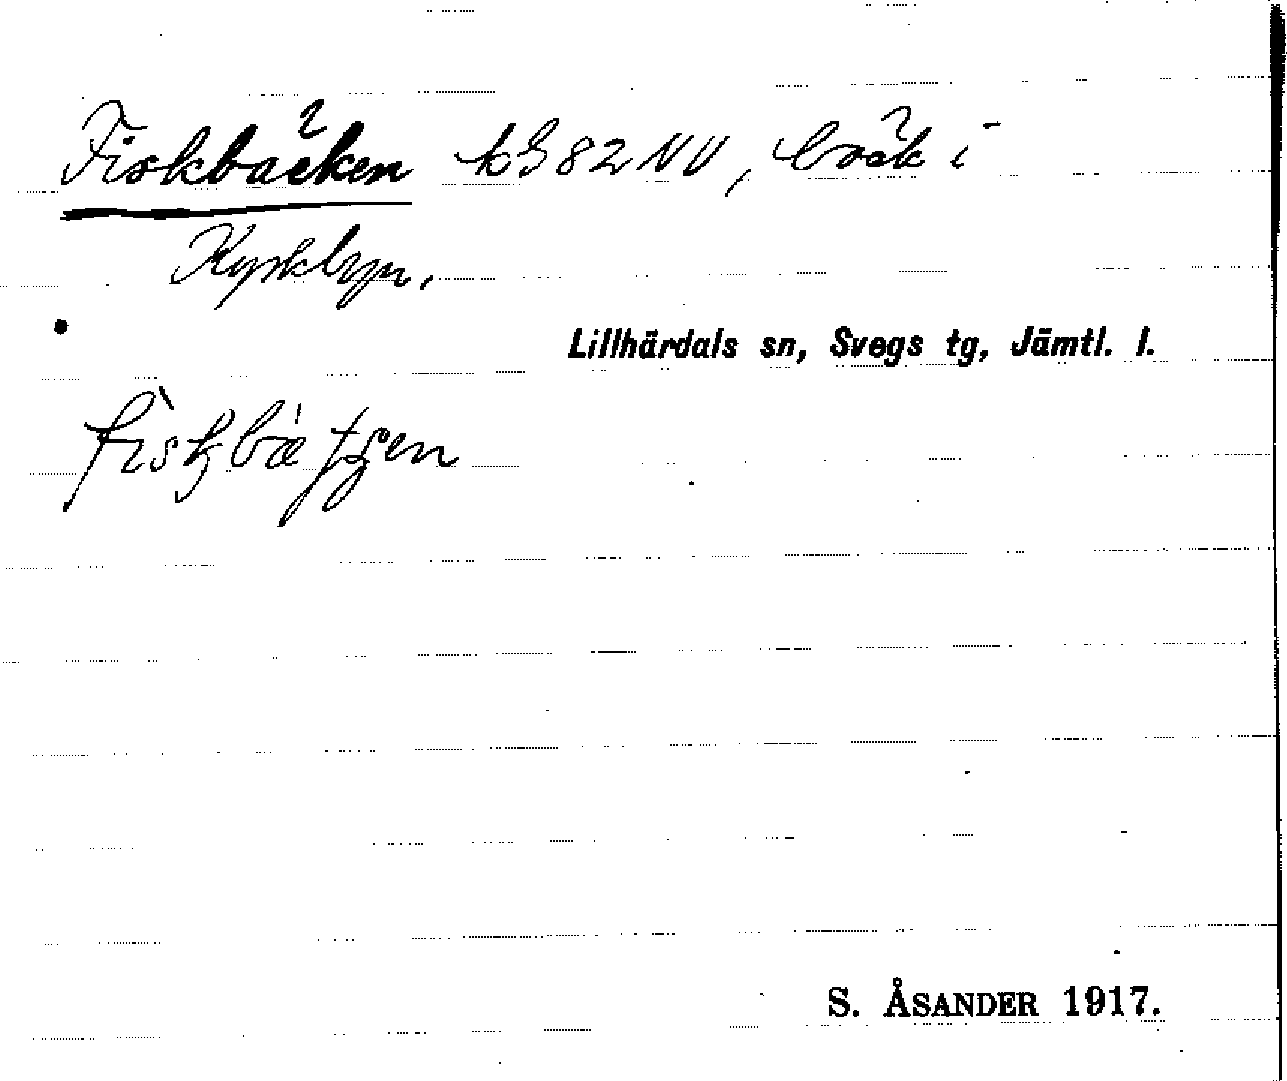 Fiskbäcken kB 82 NV, bäck i
Kyrkbyn.
Lillhärdals sn, Svegs tg, Jämtl. l.
S. ÅSANDER 1917.